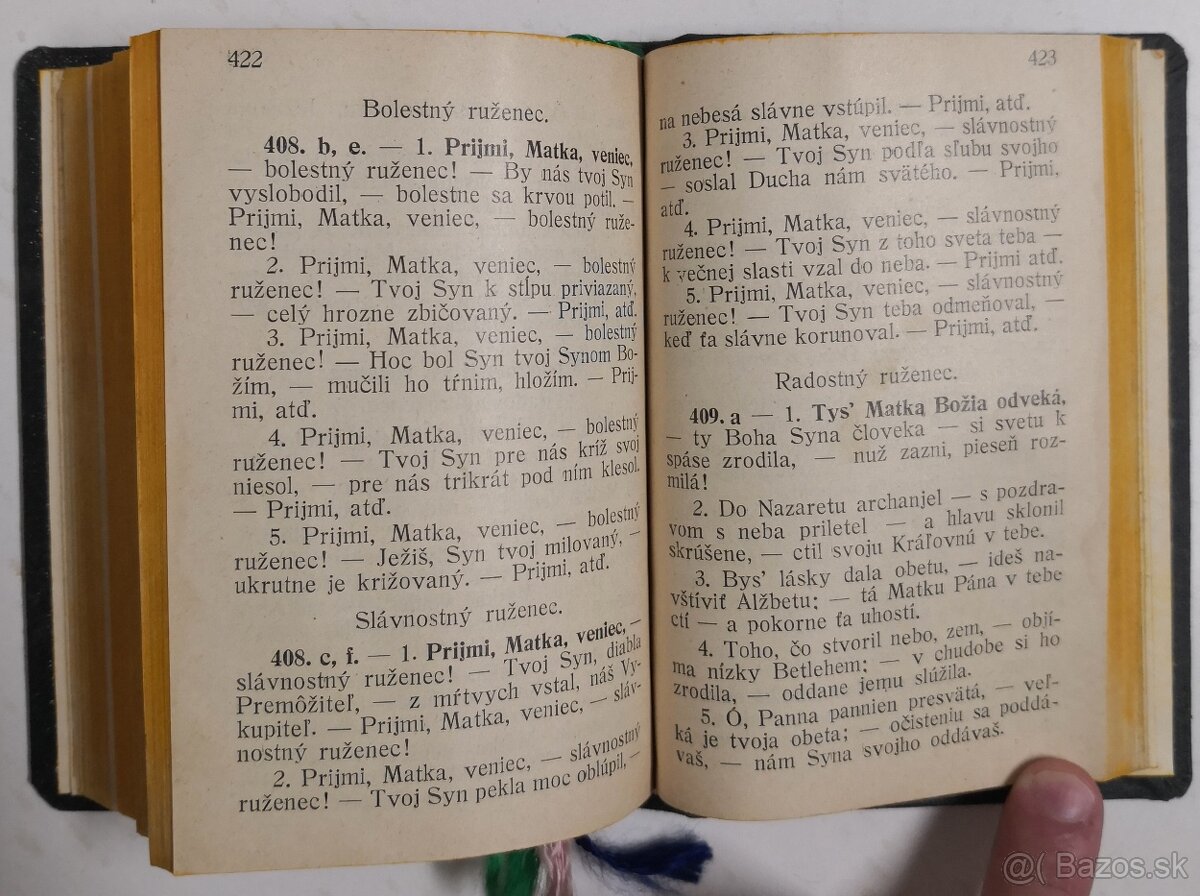 422
Bolestný ruženec.
408. b, e. — 1. Prijmi, Matka, veniec,
— bolestný ruženec! — By nás tvoj Syn
vyslobodil, — bolestne sa krvou potil. —
Prijmi, Matka, veniec, — bolestný ruže-
nec!
2. Prijmi, Matka, veniec, — bolestný
ruženec! — Tvoj Syn k stĺpu priviazaný,
— celý hrozne zbičovaný. — Prijmi, atď.
3. Prijmi, Matka, veniec, — bolestný
ruženec! — Hoc bol Syn tvoj Synom Bo-
žím, — mučili ho tŕnim, hložím. — Prij-
mi, atď.
4. Prijmi, Matka, veniec, — bolestný
ruženec! — Tvoj Syn pre nás kríž svoj
niesol, — pre nás trikrát pod ním klesol.
— Prijmi, atď.
5. Prijmi, Matka, veniec, — bolestný
ruženec! — Ježiš, Syn tvoj milovaný, —
ukrutne je križovaný. — Prijmi, atď.
Slávnostný ruženec.
408. c, f. — 1. Prijmi, Matka, veniec, —
slávnostný ruženec! — Tvoj Syn, diabla
Premôžiteľ, — z mŕtvych vstal, náš Vy-
kupiteľ. — Prijmi, Matka, veniec, — sláv-
nostný ruženec!
2. Prijmi, Matka, veniec, — slávnostný
ruženec! — Tvoj Syn pekla moc oblúpil, —
423
na nebesá slávne vstúpil. — Prijmi, atď.
3. Prijmi, Matka, veniec, — slávnostný
ruženec! — Tvoj Syn podľa sľubu svojho
— soslal Ducha nám svätého. — Prijmi,
atď.
4. Prijmi, Matka, veniec, — slávnostný
ruženec! — Tvoj Syn z toho sveta teba —
k večnej slasti vzal do neba. — Prijmi atď.
5. Prijmi, Matka, veniec, — slávnostný
ruženec! — Tvoj Syn teba odmeňoval, —
keď ťa slávne korunoval. — Prijmi, atď.
Radostný ruženec.
409. a — 1. Tys' Matka Božia odveká,
— ty Boha Syna človeka — si svetu k
spáse zrodila, — nuž zazni, pieseň roz-
milá!
2. Do Nazaretu archanjel — s pozdra-
vom s neba priletel — a hlavu sklonil
skrúšene, — ctil svoju Kráľovnú v tebe.
3. Bys' lásky dala obetu, — ideš na-
vštíviť Alžbetu; — tá Matku Pána v tebe
ctí — a pokorne ťa uhostí.
4. Toho, čo stvoril nebo, zem, — objí-
ma nízky Betlehem; — v chudobe si ho
zrodila, — oddane jemu slúžila.
5. Ó, Panna pannien presvätá, — veľ-
ká je tvoja obeta; — očisteniu sa poddá-
vaš, — nám Syna svojho oddávaš.
@( Bazos.sk